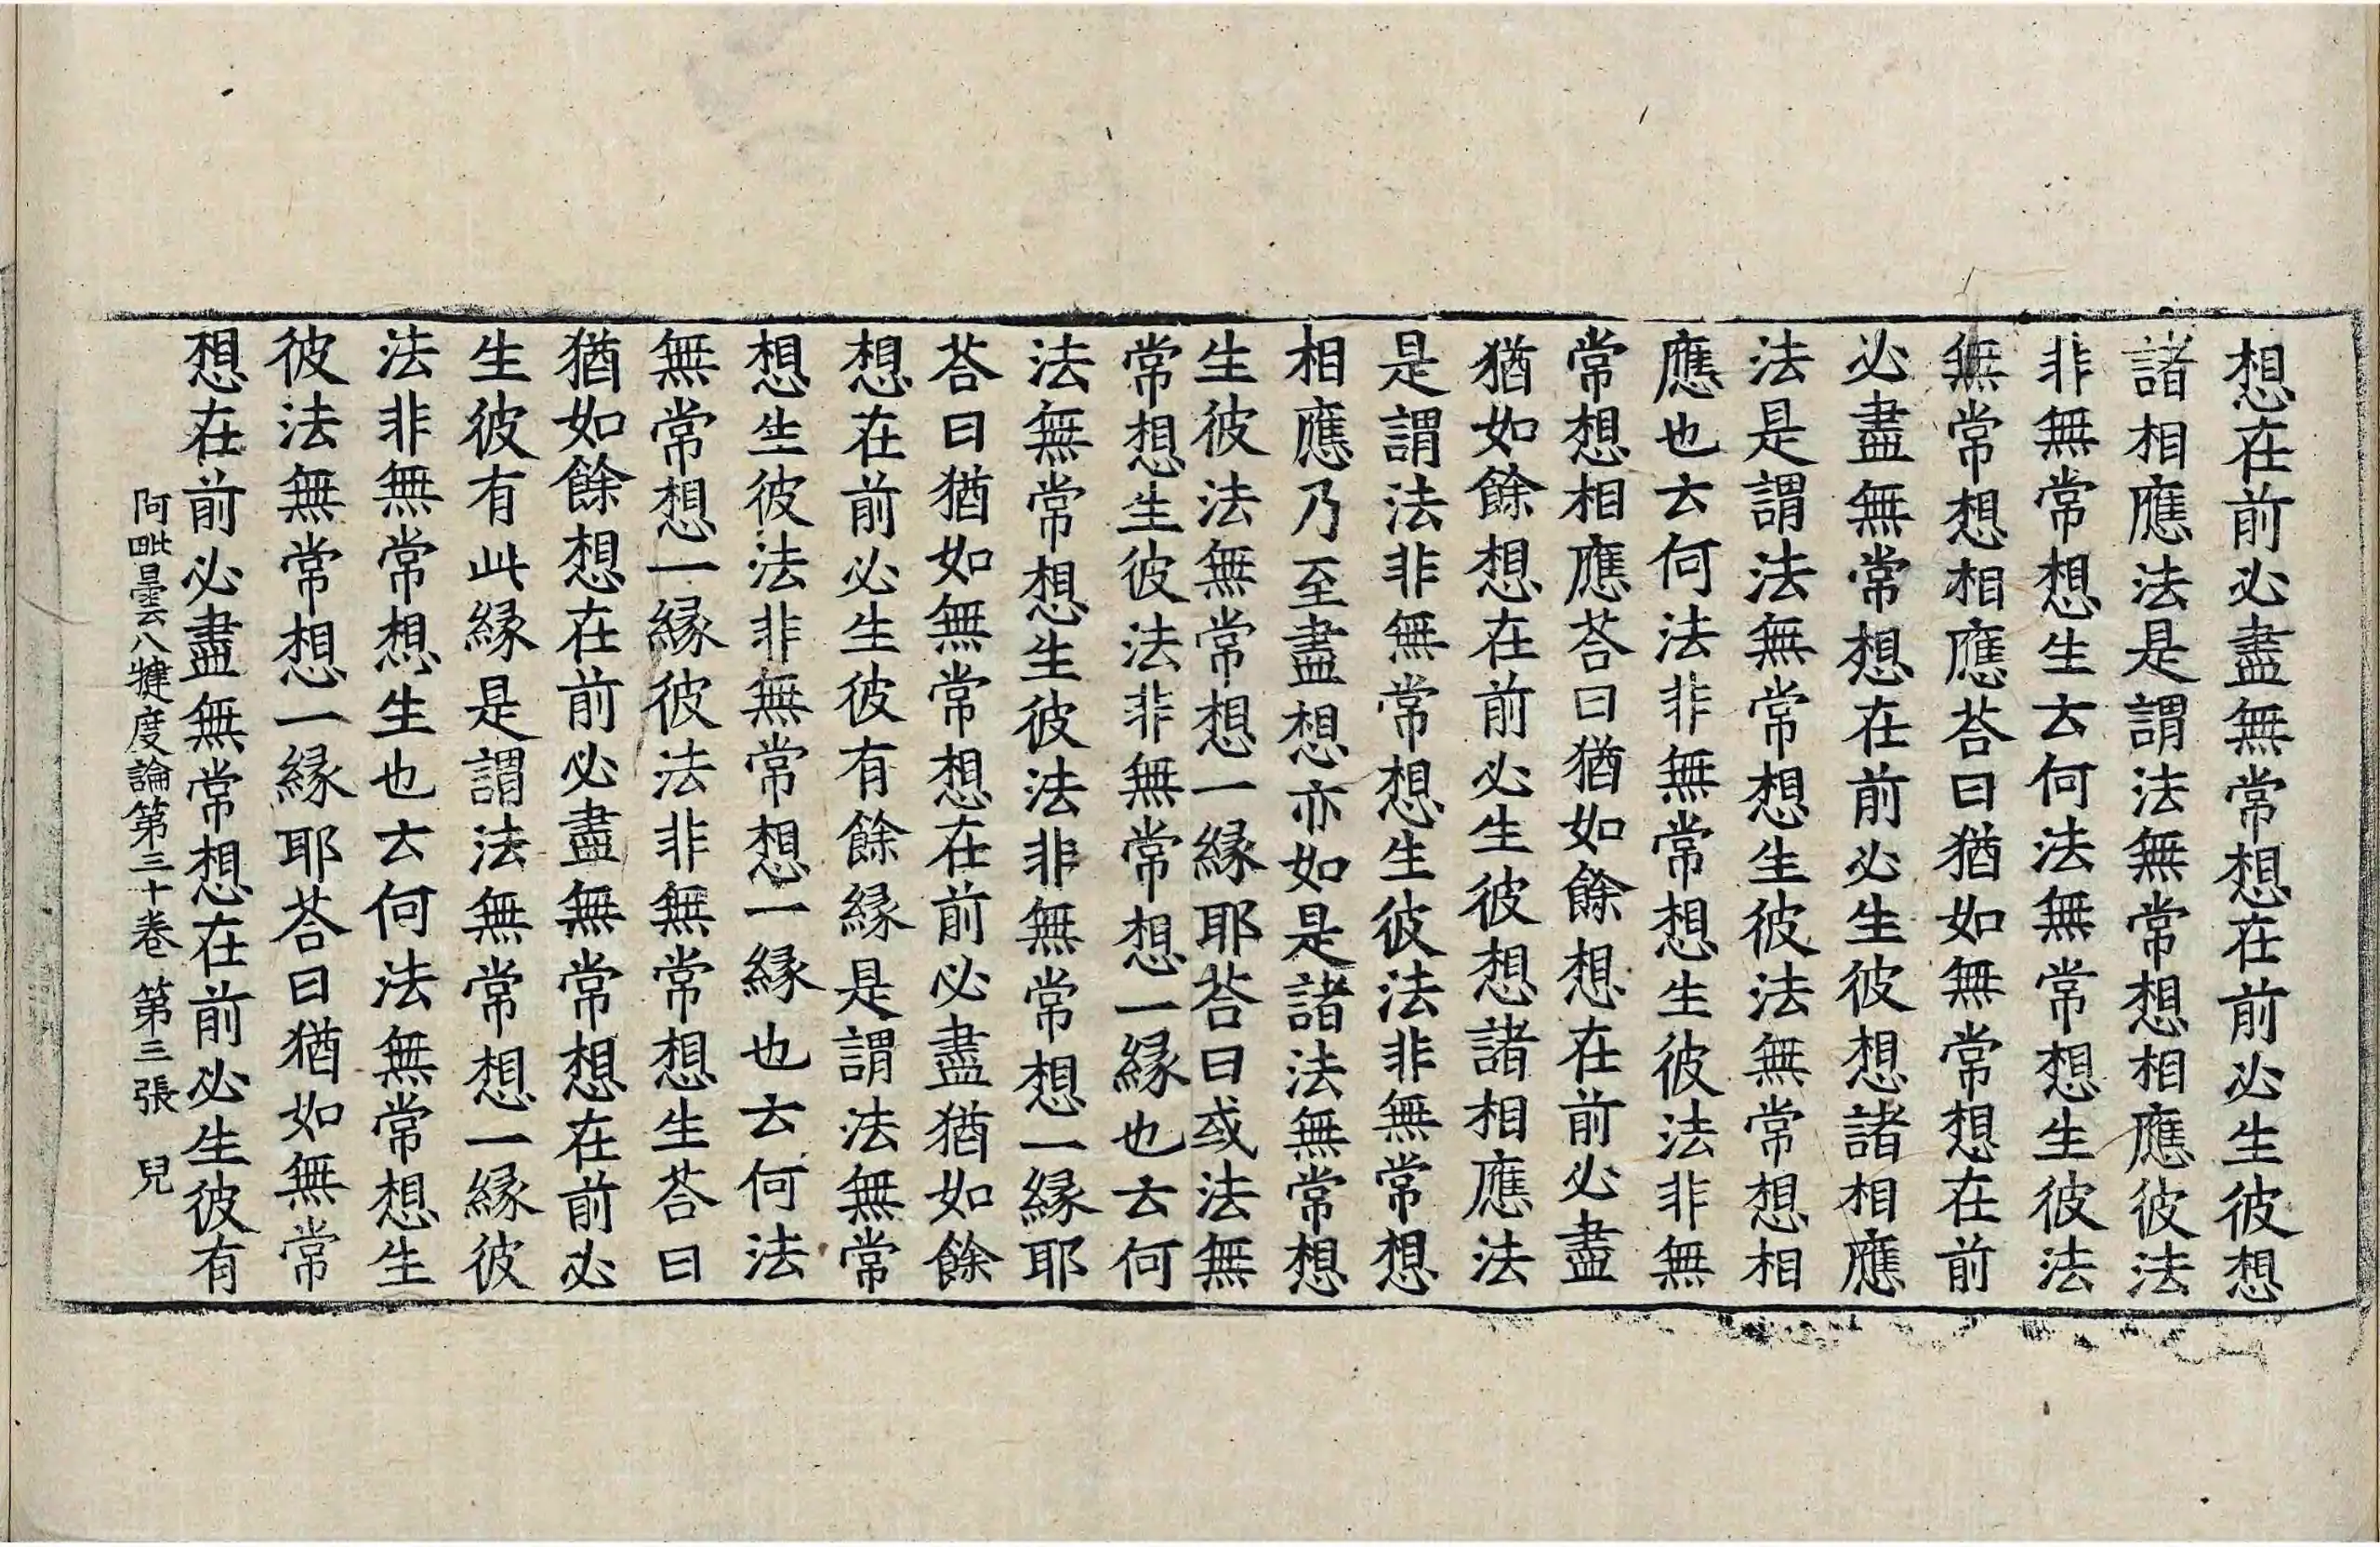 想在前必盡無常想在前必生彼想
諸相應法是謂法無常想相應彼法
非無常想生云何法無常想生彼法
無常想相應荅曰猶如無常想在前
必盡無常想在前必生彼想諸相應
法是謂法無常想生彼法無常想相
應也云何法非無常想生彼法非無
常想相應荅曰猶如餘想在前必盡
猶如餘想在前必生彼想諸相應法
是謂法非無常想生彼法非無常想
相應乃至盡想亦如是諸法無常想
生彼法無常想一縁耶荅曰或法無
常想生彼法非無常想一縁也云何
法無常想生彼法非無常想一縁耶
荅曰猶如無常想在前必盡猶如餘
想在前必生彼有餘縁是謂法無常
想生彼法非無常想一縁也云何法
無常想一縁彼法非無常想生荅曰
猶如餘想在前必盡無常想在前必
生彼有此縁是謂法無常想一縁彼
法非無常想生也云何法無常想生
彼法無常想一縁耶荅曰猶如無常
想在前必盡無常想在前必生彼有
阿毗曇八犍度論第三十卷 第三張 兒